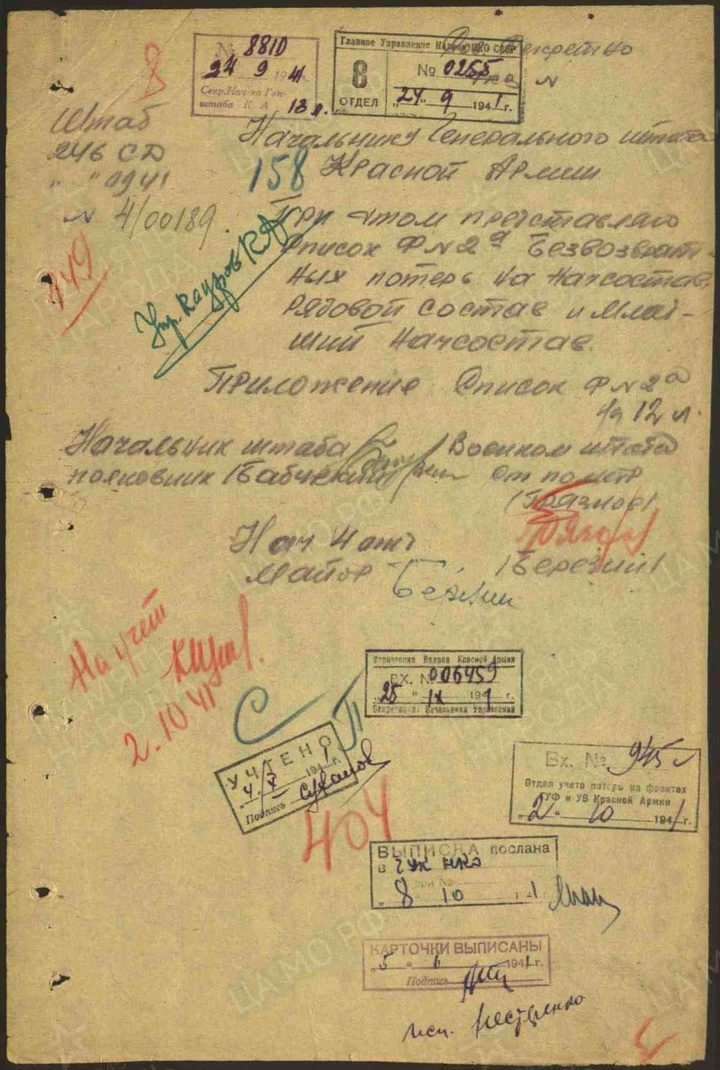 № 8810
24 9 1941
Секр. Нач-ка Ген-
штаба К. А.
Главное Управление НКО СССР
8
ОТДЕЛ
№ 0255
"24" 9 1941 г.
Секретно
8
Штаб
246 СД
" " 1941
N 4/00189.
Начальнику Генерального штаба
Красной Армии
158
149
При этом представляю
список Ф N 2а Безвозврат
ных потерь на начсостав,
рядовой состав и млад-
ший начсостав.
Приложение Список Ф N 2а
на 12 л.
Начальник штаба
полковник /Бабченко
/Военком штаба
/Грязнов/
Нач 4 отд
Майор
/Березин/
На учет
2.10.41
Управление Кадров Красной Армии
ВХ. № 006459
"25" IX 1941 г.
Секретариат Начальника Управления
С П
УЧТЕНО
4 X 1941 г.
Подпись
404
Вх. № 945
Отдел учета потерь на фронтах
ГУФ и УВ Красной Армии
"2" 10 1941 г.
ВЫПИСКА послана
в ГУК НКО
"8" 10
КАРТОЧКИ ВЫПИСАНЫ
"5" 6 1941 г.
Подпись
исп. Нестеренко
ЦАМО РФ